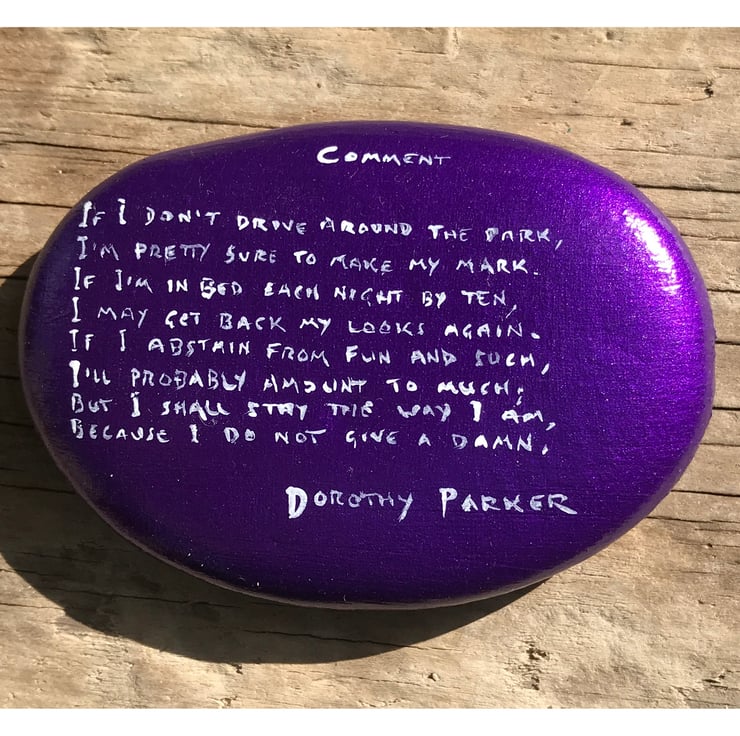 COMMENT
IF I DON'T DROVE AROUND THE PARK,
I'M PRETTY SURE TO MAKE MY MARK.
IF I'M IN BED EACH NIGHT BY TEN,
I MAY GET BACK MY LOOKS AGAIN.
IF I ABSTAIN FROM FUN AND SUCH,
I'LL PROBABLY AMOUNT TO MUCH;
BUT I SHALL STAY THE WAY I AM,
BECAUSE I DO NOT GIVE A DAMN.
DOROTHY PARKER